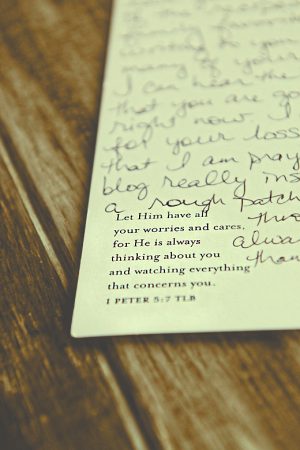 many of your
I can hear the
that you are go
right now I
for your loss
that I am pray
blog really ins
a rough patch
thro
alwa
than
Let Him have all
your worries and cares,
for He is always
thinking about you
and watching everything
that concerns you.
1 PETER 5:7 TLB